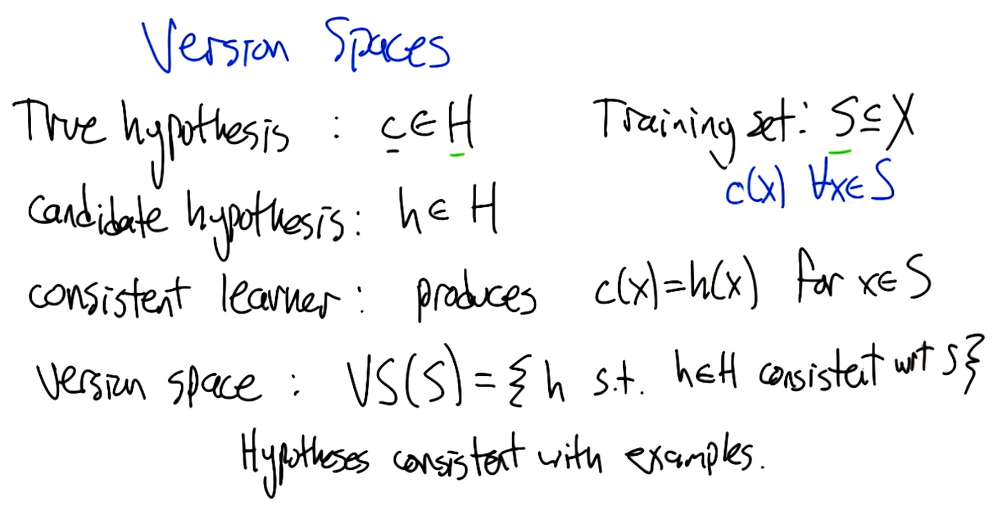 Version Spaces
True hypothesis : c ∈ H
Training set: S ⊆ X
c(x) ∀x∈ S
candidate hypothesis: h ∈ H
consistent learner: produces c(x)=h(x) for x∈ S
version space : VS(S) = { h s.t. h∈H consistent wrt S}
Hypotheses consistent with examples.